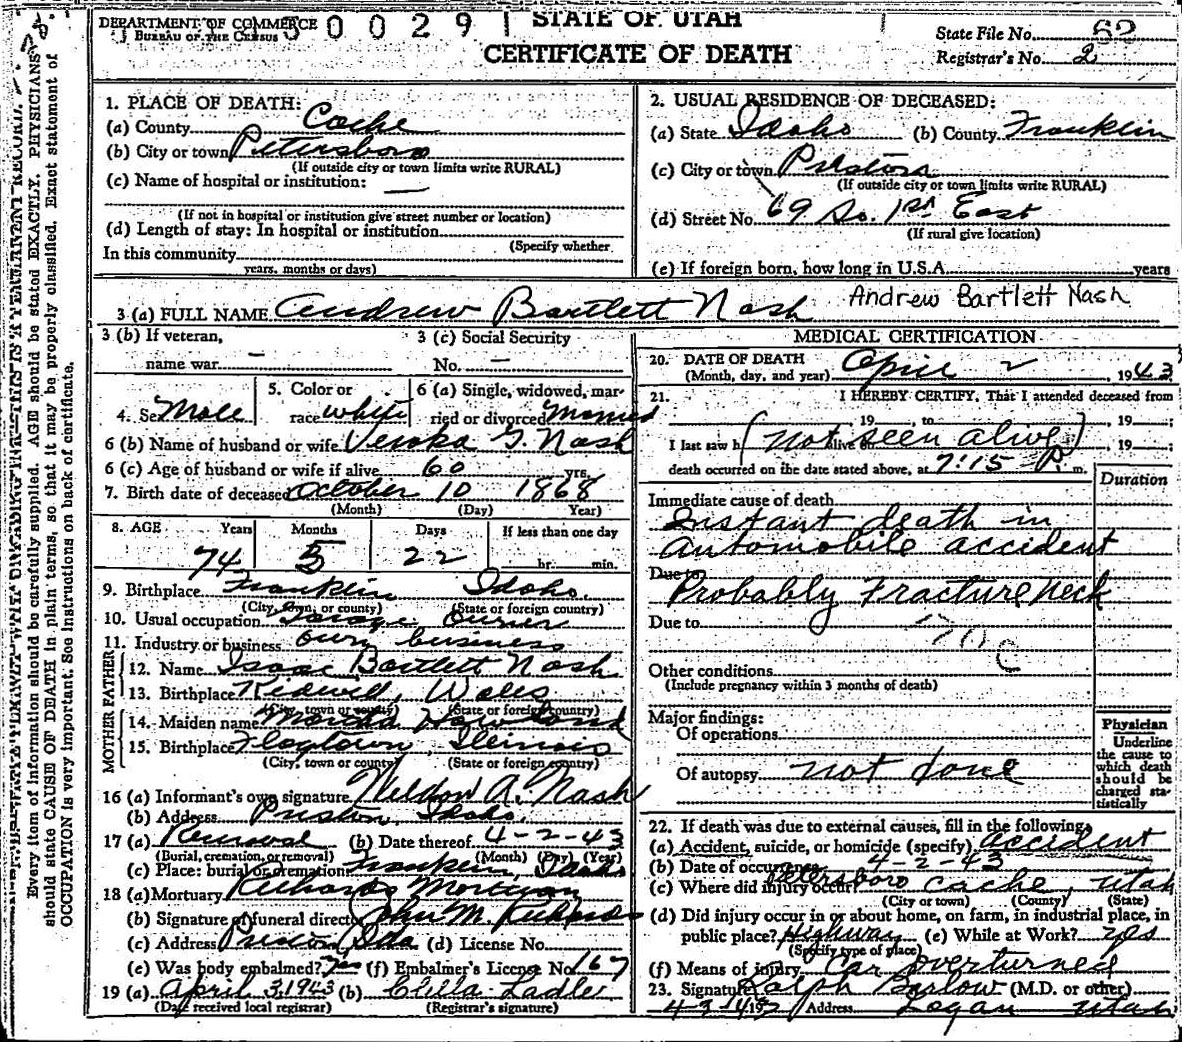 DEPARTMENT OF COMMERCE
BUREAU OF THE CENSUS
0 0 2 9 1
STATE OF UTAH
CERTIFICATE OF DEATH
State File No. 62
Registrar's No. 2
1. PLACE OF DEATH:
(a) County Cache
(b) City or town Petersboro
(If outside city or town limits write RURAL)
(c) Name of hospital or institution: —
(If not in hospital or institution give street number or location)
(d) Length of stay: In hospital or institution
(Specify whether
In this community
years, months or days)
2. USUAL RESIDENCE OF DECEASED:
(a) State Idaho (b) County Franklin
(c) City or town Preston
(If outside city or town limits write RURAL)
(d) Street No. 69 So. 1st East
(If rural give location)
(e) If foreign born, how long in U.S.A. years
3 (a) FULL NAME Andrew Bartlett Nash Andrew Bartlett Nash
3 (b) If veteran,
name war —
3 (c) Social Security
No. —
4. Sex Male
5. Color or
race white
6 (a) Single, widowed, mar-
ried or divorced Married
6 (b) Name of husband or wife G. Nash
6 (c) Age of husband or wife if alive 60 yrs.
7. Birth date of deceased October 10 1868
(Month) (Day) Year)
8. AGE Years Months Days If less than one day
74 5 22 hr. min.
9. Birthplace Franklin Idaho.
(City, town, or county) (State or foreign country)
10. Usual occupation Garage Owner
11. Industry or business own business
FATHER
12. Name Isaac Bartlett Nash
13. Birthplace Kidwell, Wales
(City, town or county) (State or foreign country)
MOTHER
14. Maiden name Martha Howland
15. Birthplace Illinois
(City, town or county) (State or foreign country)
16 (a) Informant's own signature Weldon A. Nash
(b) Address Preston, Idaho.
17 (a) Removal (b) Date thereof 4-2-43
(Burial, cremation, or removal) (Month) (Day) (Year)
(c) Place: burial or cremation Franklin, Idaho
18 (a) Mortuary Richards Mortuary
(b) Signature of funeral director John M. Richards
(c) Address Preston, Ida (d) License No.
(e) Was body embalmed? Yes (f) Embalmer's License No. 167
19 (a) April 3, 1943 (b) Ladle
(Date received local registrar) (Registrar's signature)
MEDICAL CERTIFICATION
20. DATE OF DEATH
(Month, day, and year) April 2, 1943
21. I HEREBY CERTIFY, That I attended deceased from
, 19 , to , 19 ;
I last saw h alive on (not seen alive) , 19 ;
death occurred on the date stated above, at 7:15 P. m.
Duration
Immediate cause of death
Instant death in
automobile accident
Due to
Probably Fracture Neck
Due to
170c
Other conditions
(Include pregnancy within 3 months of death)
Major findings:
Of operations
Of autopsy not done
Physician
Underline
the cause to
which death
should be
charged sta-
tistically
22. If death was due to external causes, fill in the following:
(a) Accident, suicide, or homicide (specify) accident
(b) Date of occurrence 4-2-43
(c) Where did injury occur? Petersboro Cache, Utah
(City or town) (County) (State)
(d) Did injury occur in or about home, on farm, in industrial place, in
public place? Highway (e) While at Work? yes
(Specify type of place)
(f) Means of injury Car overturned
23. Signature Ralph Barlow (M.D. or other)
4-3-1943 Address Logan Utah
Every item of information should be carefully supplied. AGE should be stated EXACTLY. PHYSICIANS
should state CAUSE OF DEATH in plain terms, so that it may be properly classified. Exact statement of
OCCUPATION is very important. See instructions on back of certificate.